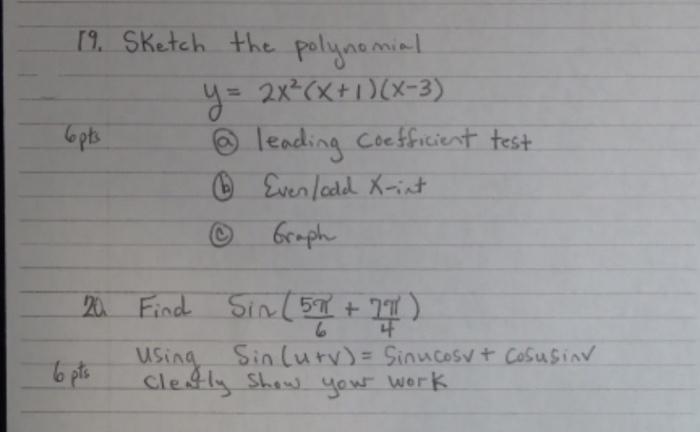 19. Sketch the polynomial
y = 2x²(x+1)(x-3)
6pts ⓐ leading coefficient test
ⓑ Even/odd X-int
ⓒ Graph
20. Find Sin(5π/6 + 7π/4)
Using Sin(u+v) = Sinucosv + Cosusinv
6 pts Clearly Show your work